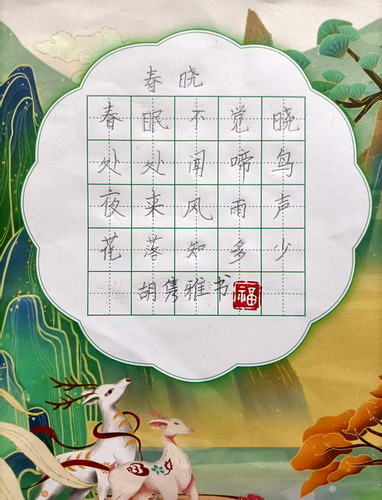 春晓
春眠不觉晓
处处闻啼鸟
夜来风雨声
花落知多少
胡隽雅书
福